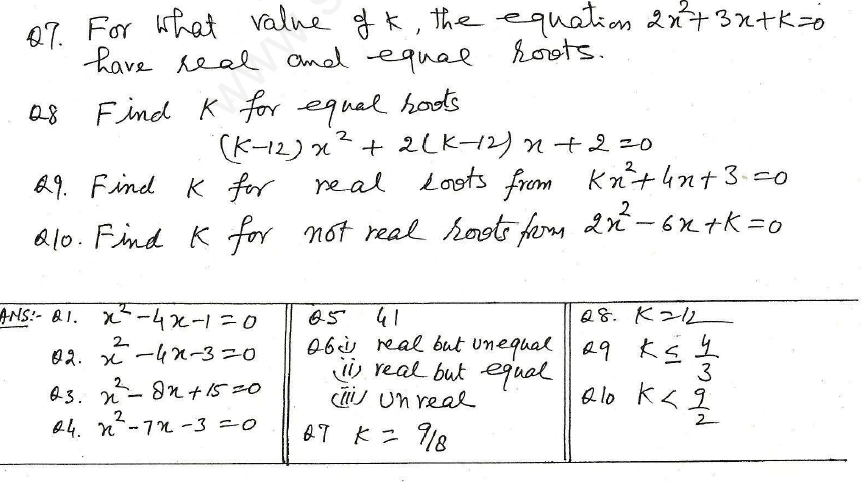 Q7. For what value of k, the equation 2x²+3x+k=0
have real and equal roots.
Q8 Find K for equal roots
(K-12)x² + 2(K-12)x + 2 = 0
Q9. Find K for real roots from Kx²+4x+3=0
Q10. Find K for not real roots from 2x²-6x+K=0
ANS:- Q1. x²-4x-1=0
Q2. x²-4x-3=0
Q3. x²-8x+15=0
Q4. x²-7x-3=0
Q5 41
Q6 (i) real but unequal
(ii) real but equal
(iii) Unreal
Q7 K = 9/8
Q8. K=12
Q9 K ≤ 4/3
Q10 K < 9/2